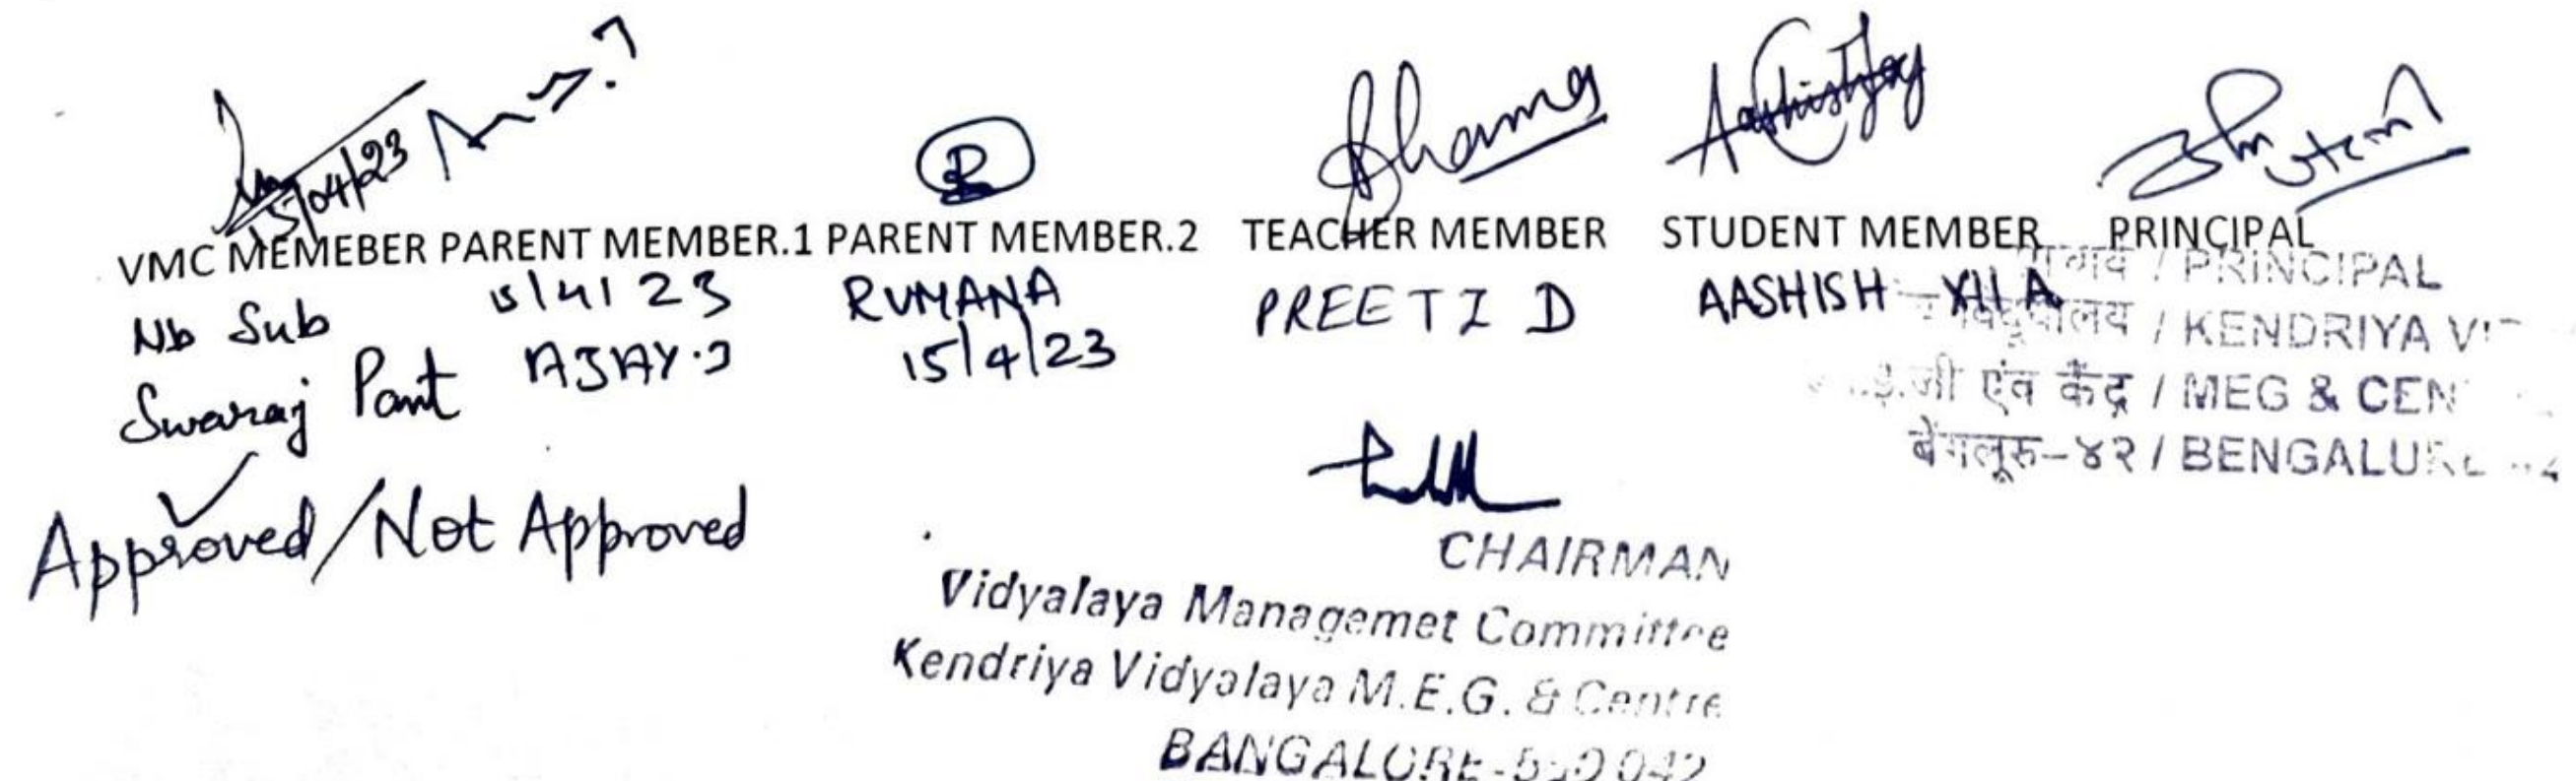 15/04/23
VMC MEMEBER PARENT MEMBER.1 PARENT MEMBER.2 TEACHER MEMBER STUDENT MEMBER PRINCIPAL
Nb Sub
Swaraj Pant
15/4/23
AJAY.J
RUMANA
15/4/23
PREETI D
AASHISH XII A
/ PRINCIPAL
/ KENDRIYA
एंव केंद्र / MEG & CEN
बेंगलूरु-४२ / BENGALU
Approved/Not Approved
CHAIRMAN
Vidyalaya Managemet Committee
Kendriya Vidyalaya M.E.G. & Centre
BANGALORE-560 042